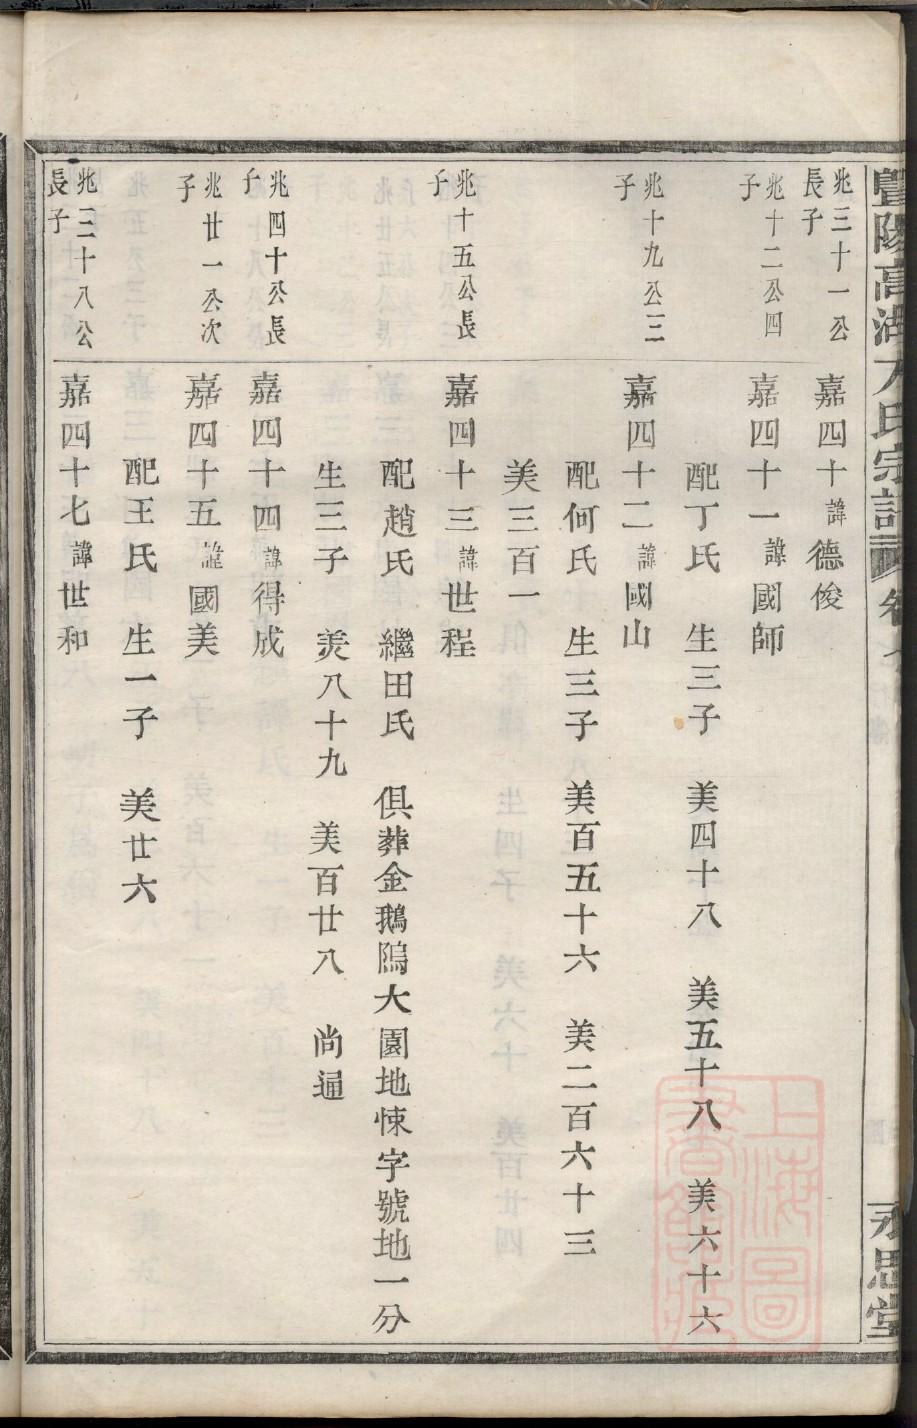 暨陽高湖方氏宗譜
永思堂
兆三十一公長子
嘉四十諱德俊
兆十二公四子
嘉四十一諱國師
配丁氏 生三子 美四十八 美五十八 美六十六
兆十九公三子
嘉四十二諱國山
配何氏 生三子 美百五十六 美二百六十三
美三百一
兆十五公長子
嘉四十三諱世程
配趙氏 繼田氏 俱葬金鵝隖大園地悚字號地一分
生三子 美八十九 美百廿八 尚通
兆四十公長子
嘉四十四諱得成
兆廿一公次子
嘉四十五諱國美
配王氏 生一子 美廿六
兆三十八公長子
嘉四十七諱世和
上海圖書館藏